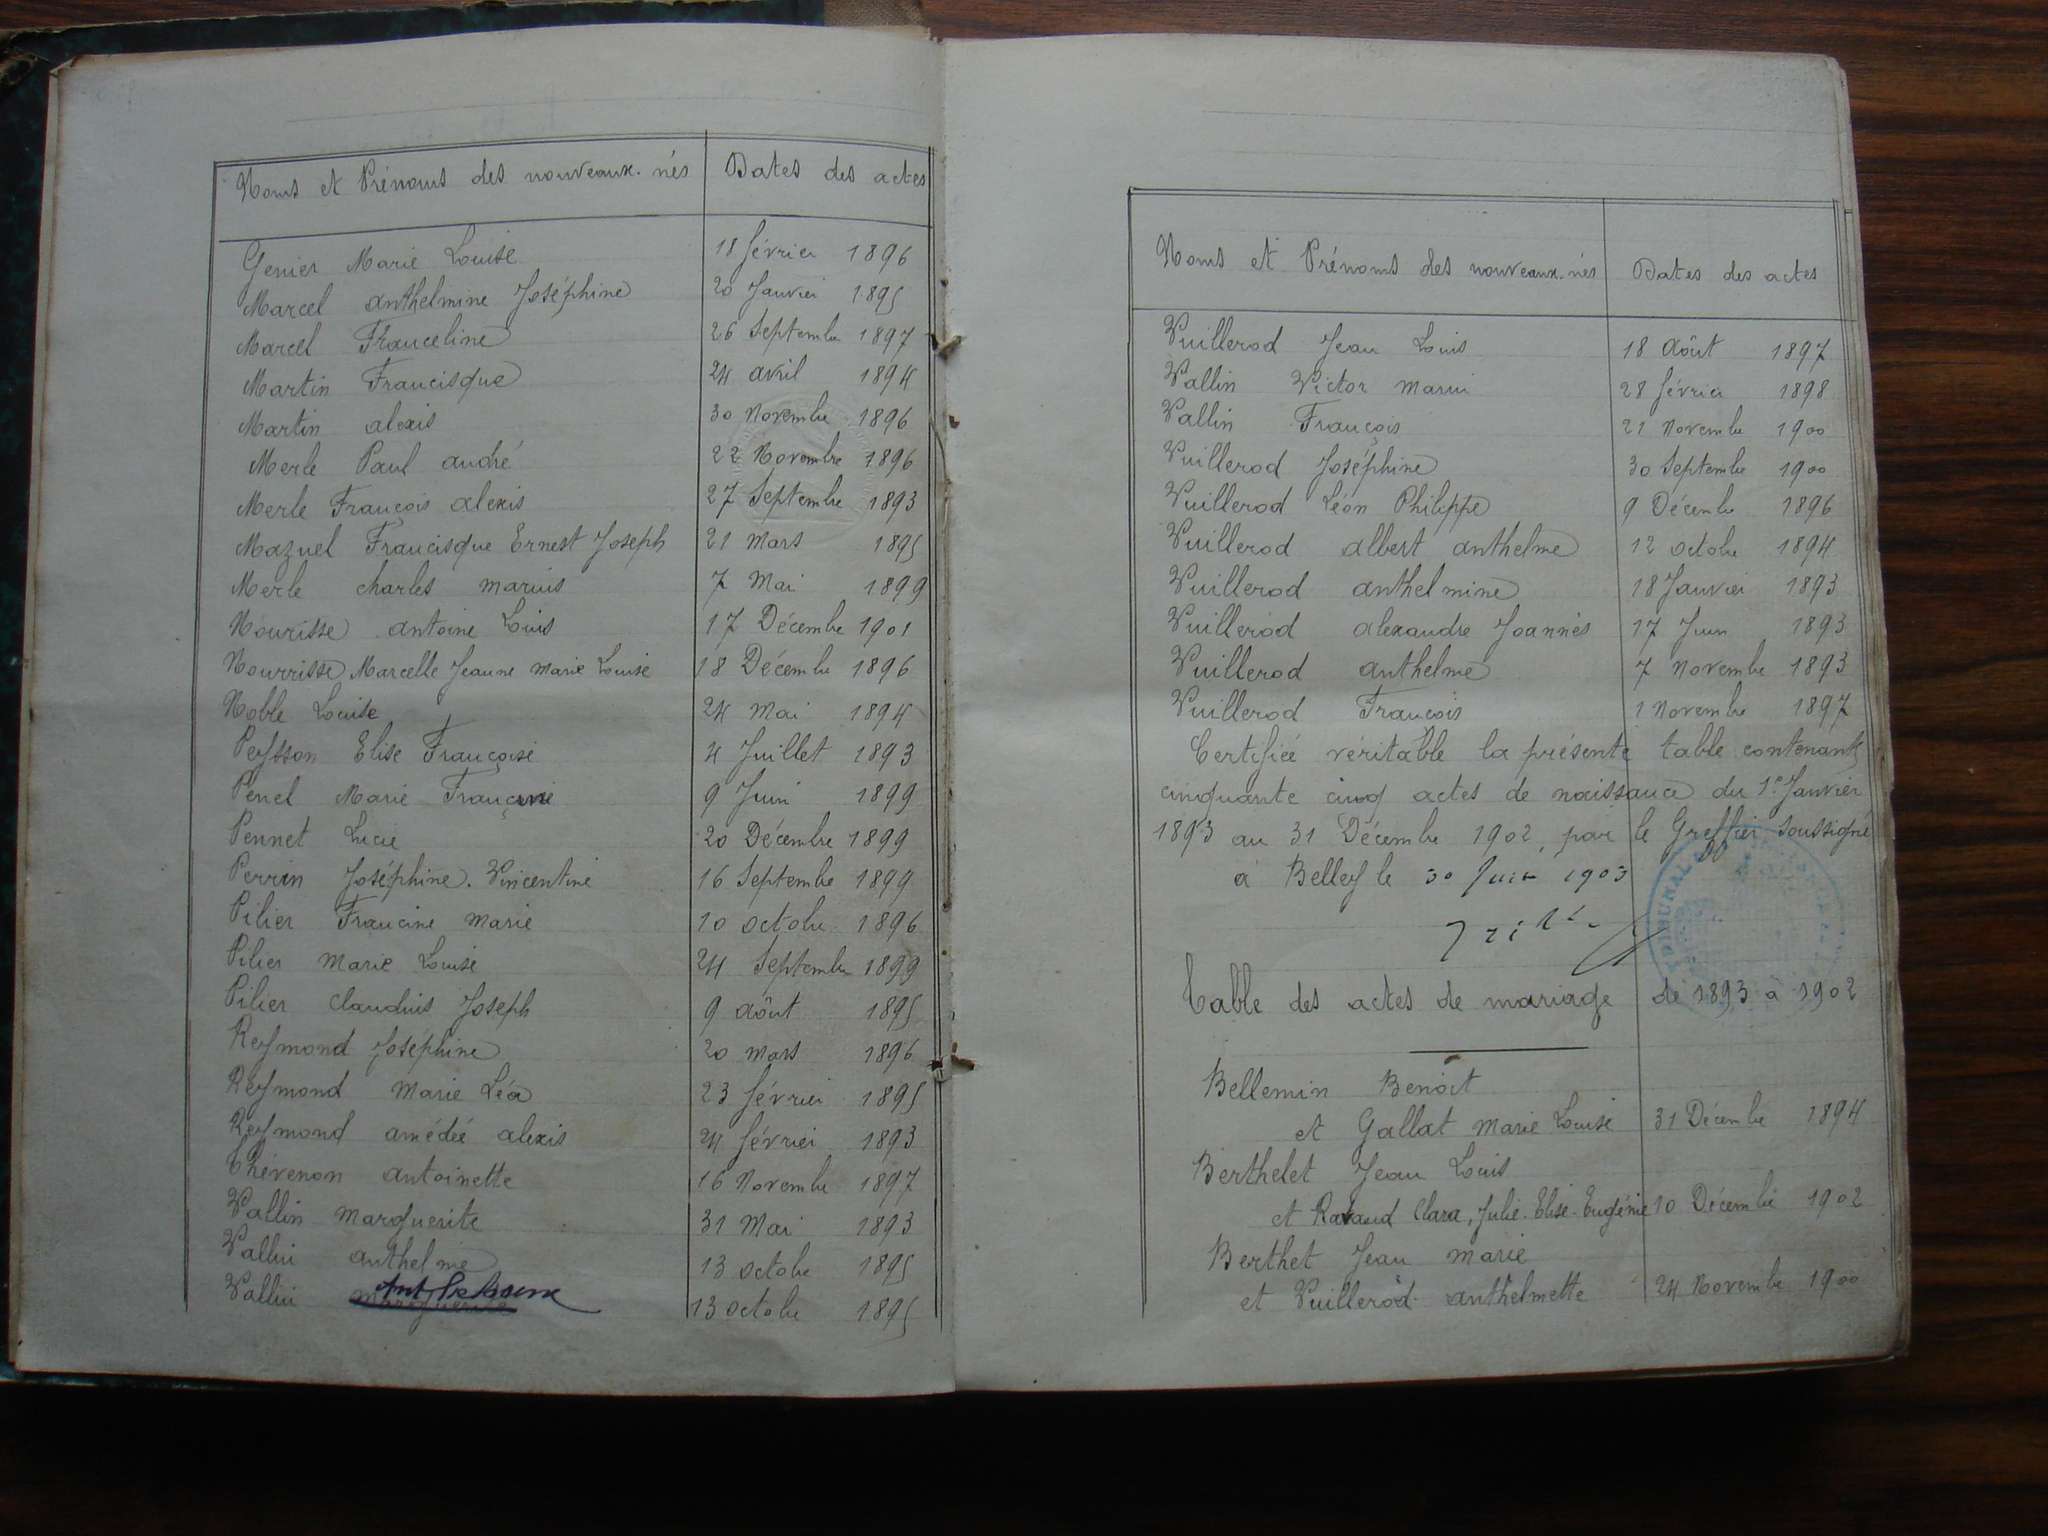 Noms et Prénoms des nouveaux-nés Dates des actes
Genier Marie Louise 18 février 1896
Marcel anthelmine Joséphine 20 Janvier 1895
Marcel Franceline 26 Septembre 1897
Martin Francisque 24 avril 1894
Martin alexis 30 Novembre 1896
Merle Paul andré 22 Novembre 1896
Merle François alexis 27 Septembre 1893
Mazuel Francisque Ernest Joseph 21 mars 1895
Merle charles marius 7 Mai 1899
Nourisse antoine Louis 17 Décembre 1901
Nourrisse Marcelle Jeanne Marie Louise 18 Décembre 1896
Noble Louise 24 Mai 1894
Peysson Elise Françoise 4 Juillet 1893
Penel Marie Françine 9 Juin 1899
Pennet Lucie 20 Décembre 1899
Perrin Joséphine. Vincentine 16 Septembre 1899
Pilier Francine Marie 10 octobre 1896
Pilier Marie Louise 24 Septembre 1899
Pilier Claudius Joseph 9 août 1895
Reymond Joséphine 20 mars 1896
Reymond Marie Léa 23 février 1895
Reymond amédée alexis 24 février 1893
Thévenon antoinette 16 Novembre 1897
Vallin Marguerite 31 Mai 1893
Vallin anthelme 13 octobre 1895
Vallin Marguerite 13 octobre 1895
Noms et Prénoms des nouveaux-nés Dates des actes
Vuillerod Jean Louis 18 Août 1897
Vallin Victor Marin 28 février 1898
Vallin François 21 Novembre 1900
Vuillerod Joséphine 30 Septembre 1900
Vuillerod Léon Philippe 9 Décembre 1896
Vuillerod albert anthelme 12 octobre 1894
Vuillerod anthelmine 18 Janvier 1893
Vuillerod alexandre Joannès 17 Juin 1893
Vuillerod anthelme 7 Novembre 1893
Vuillerod François 1 Novembre 1897
Certifiée véritable la présente table contenant
cinquante cinq actes de naissance du 1er Janvier
1893 au 31 Décembre 1902, par le Greffier soussigné
à Belley le 30 Juin 1903
TRIBUNAL
Table des actes de mariage de 1893 à 1902
Bellemin Benoit
et Gallat Marie Louise 31 Décembre 1894
Berthelet Jean Louis
et Ravaud Clara, Julie. Elise. Eugénie 10 Décembre 1902
Berthet Jean Marie
et Vuillerod anthelmette 24 Novembre 1900